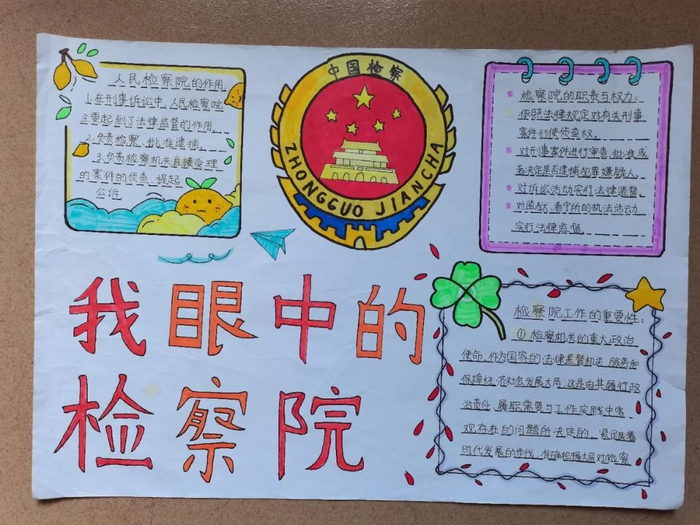 人民检察院的作用
1.在刑事诉讼中,人民检察院
主要起到了法律监督的作用。
2.负责检察、批准逮捕。
3.负责检察机关直接受理
的案件的侦查、提起
公诉
中国检察
ZHONGGUO JIANCHA
检察院的职责与权力,
依照法律规定对有关刑事
案件行使侦查权。
对刑事案件进行审查,批准或
者决定是否逮捕犯罪嫌疑人。
对诉讼活动实行法律监督。
对监狱、看守所的执法活动
实行法律监督
我眼中的
检察院
检察院工作的重要性:
①检察机关的重大政治
使命,作为国家的法律监督机关,服务和
保障经济社会发展大局,这是由其履行政
治责任、履职需要与工作实践中客
观存在的问题所决定的。紧跟着
时代发展的步伐,准确把握大局对检察